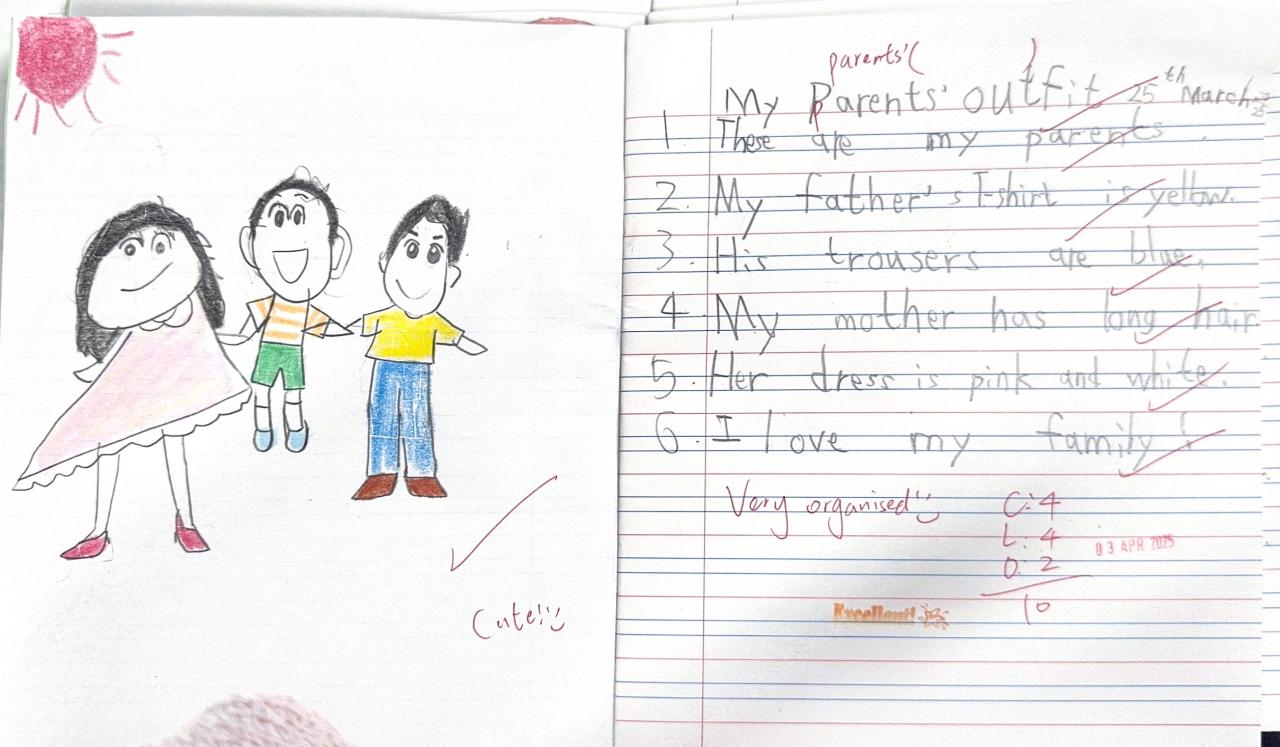 parents'( )
My Parents' outfit 25th March
1. These are my parents.
2. My father's T-shirt is yellow.
3. His trousers are blue.
4. My mother has long hair
5. Her dress is pink and white.
6. I love my family!
Very organised
C: 4
L: 4
O: 2
10
03 APR 2025
Excellent!
Cute!!